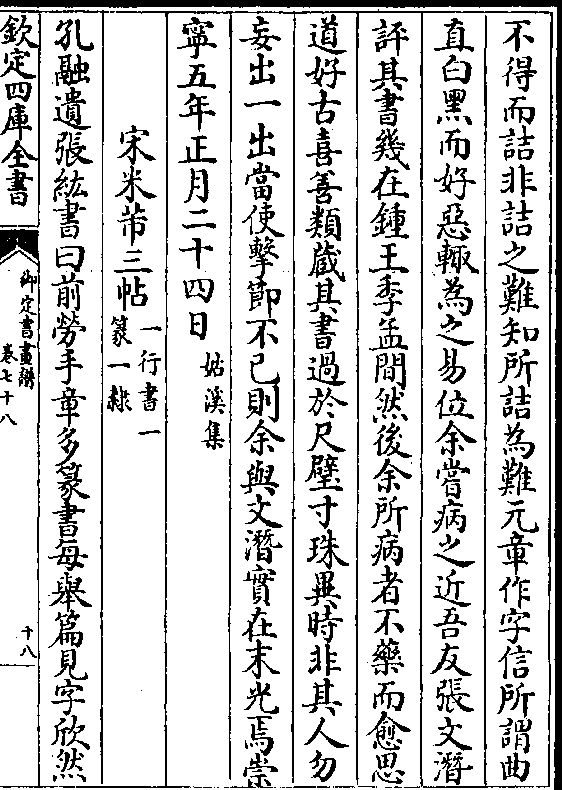 不得而詰非詰之難知所詰為難元章作字信所謂曲
直白黑而好惡輙為之易位余嘗病之近吾友張文潛
評其書幾在鍾王季孟間然後余所病者不藥而愈思
道好古喜善類蔵其書過於尺璧寸珠異時非其人勿
妄出一出當使擊節不已則余與文潛實在末光焉崇
寧五年正月二十四日姑溪集
宋米芾三帖一行書一
篆一隸
孔融遺張紘書曰前勞手章多篆書每舉篇見字欣然
欽定四庫全書
御定書畫譜
卷七十八
十八